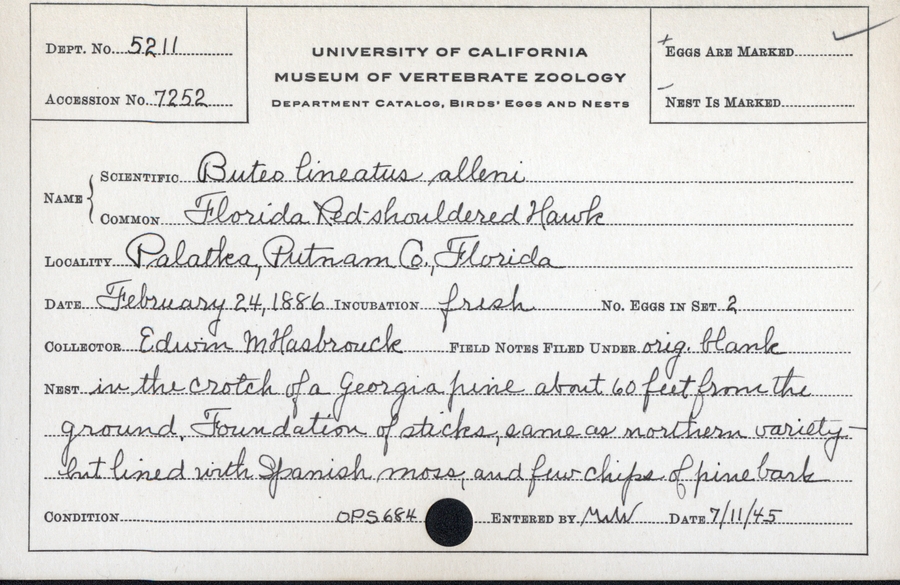 DEPT. NO. 5211
ACCESSION NO. 7252
UNIVERSITY OF CALIFORNIA
MUSEUM OF VERTEBRATE ZOOLOGY
DEPARTMENT CATALOG, BIRDS' EGGS AND NESTS
+ EGGS ARE MARKED ✓
- NEST IS MARKED
NAME { SCIENTIFIC Buteo lineatus alleni
COMMON Florida Red-shouldered Hawk
LOCALITY Palatka, Putnam Co., Florida
DATE February 24, 1886 INCUBATION fresh NO. EGGS IN SET 2
COLLECTOR Edwin M Hasbrouck FIELD NOTES FILED UNDER orig. blank
NEST in the crotch of a Georgia pine about 60 feet from the
ground. Foundation of sticks, same as northern variety-
but lined with Spanish moss, and few chips of pine bark
CONDITION OPS684 ENTERED BY MWW DATE 7/11/45